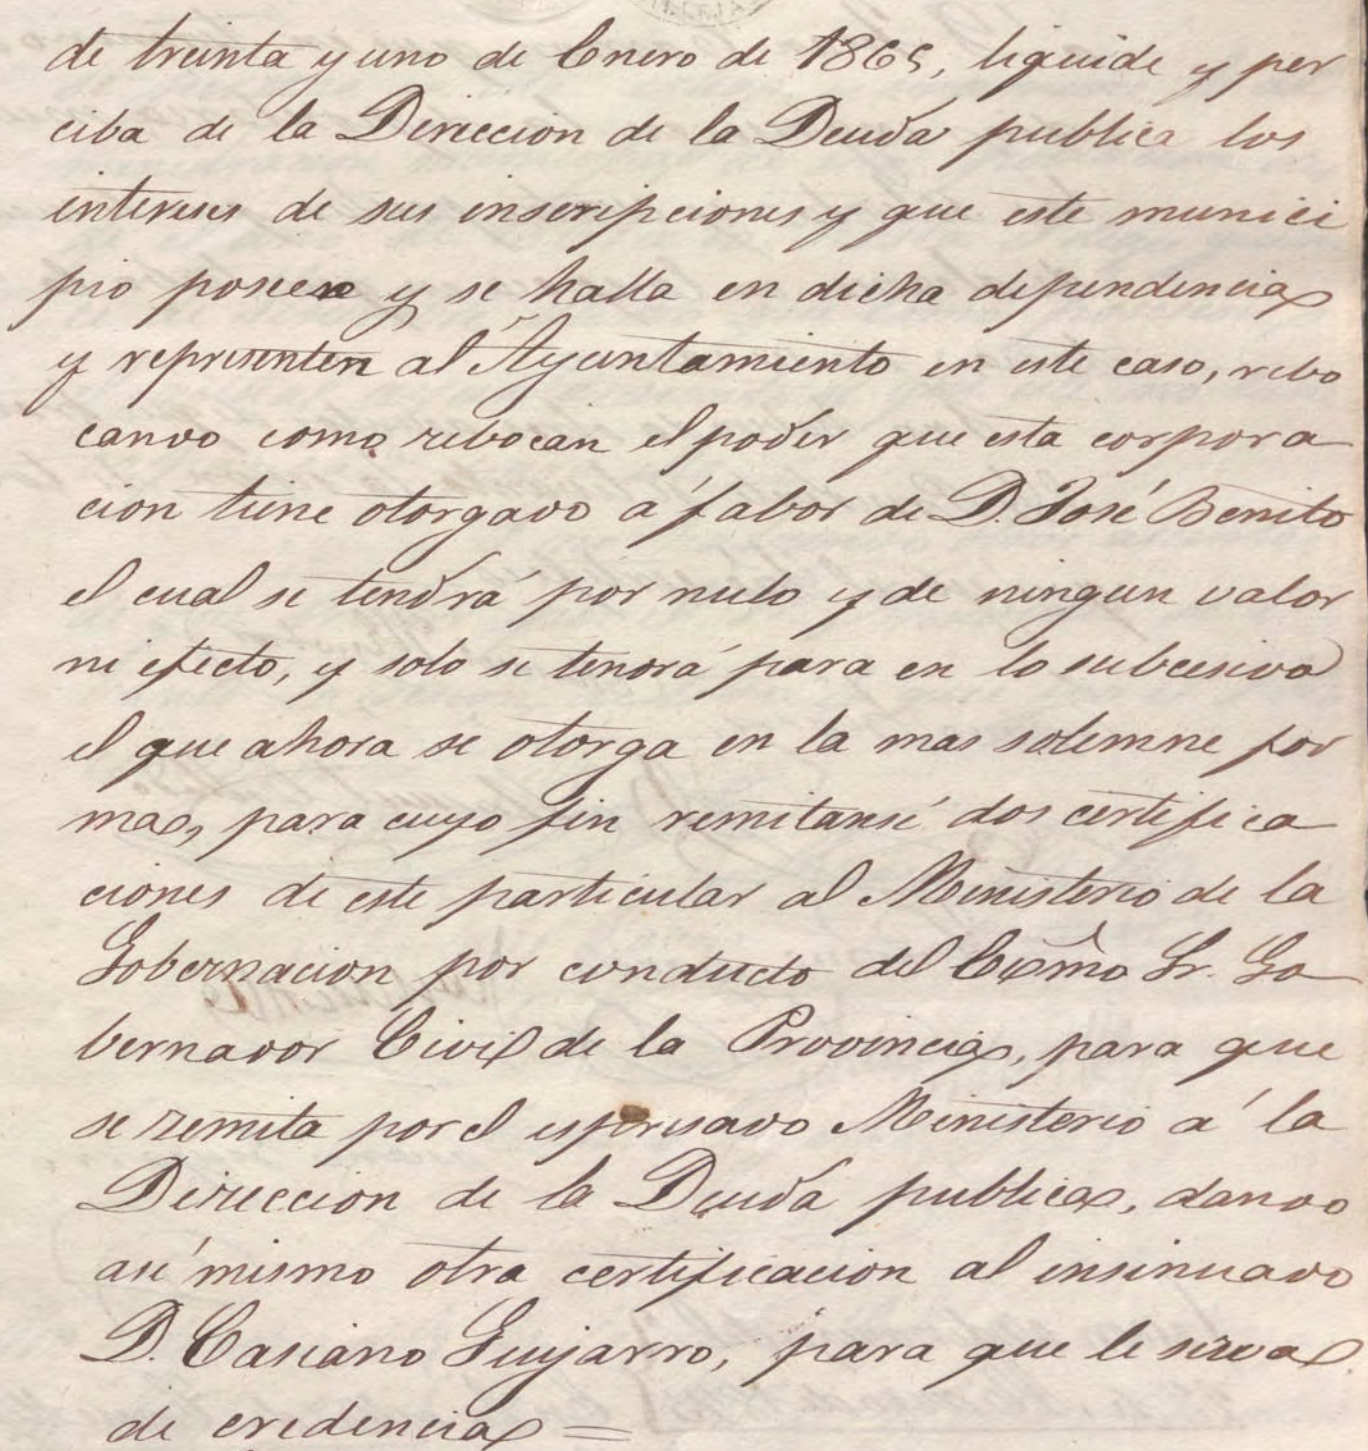 de treinta y uno de Enero de 1865, liquide y per
ciba de la Direccion de la Deuda publica los
intereses de sus inscripciones y que este munici
pio posee y se halla en dicha dependencia
y representen al Ayuntamiento en este caso, rebo
cando como rebocan el poder que esta corpora
cion tiene otorgado á fabor de D. José Benito
el cual se tendrá por nulo y de ningun valor
ni efecto, y solo se tendrá para en lo subcesivo
el que ahora se otorga en la mas solemne for
ma, para cuyo fin remitansé dos certifica
ciones de este particular al Ministerio de la
Gobernacion por conducto del Exmo Sr. Go
bernador Civil de la Provincia, para que
se remita por el espresado Ministerio á la
Direccion de la Deuda publica, dando
asi mismo otra certificacion al insinuado
D. Casiano Guijarro, para que le sirva
de credencia =